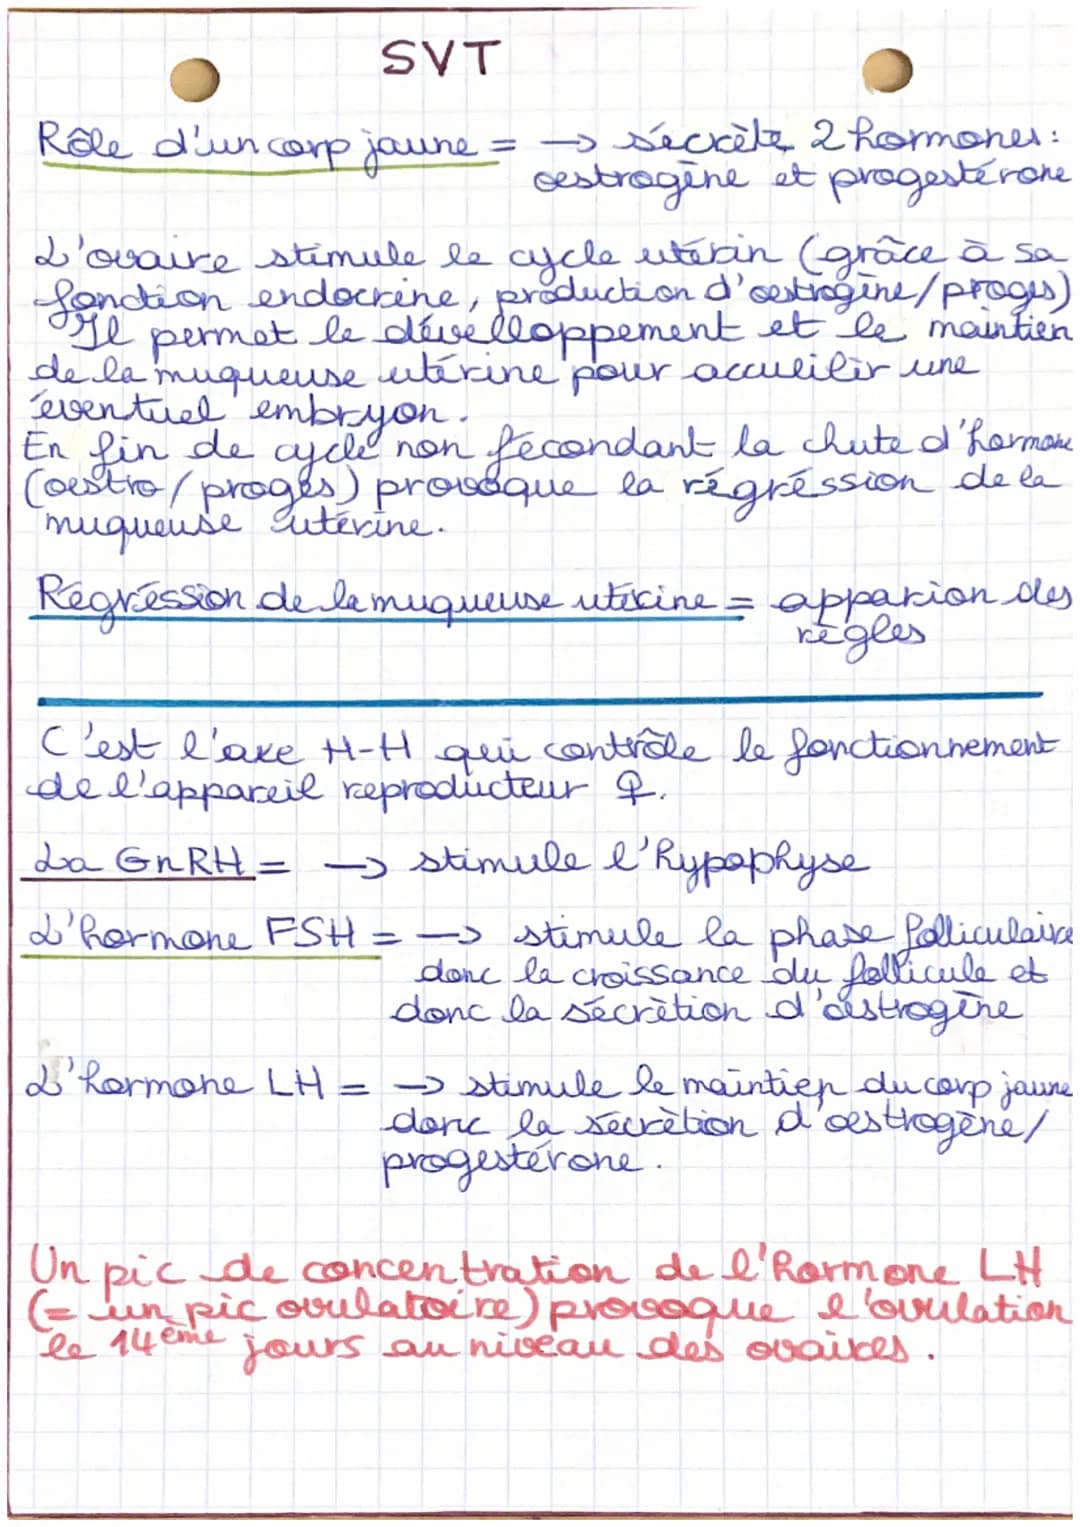 SVT
Rôle d'un corp jaune = → sécrète 2 hormones:
oestrogène et progestérone
L'ovaire stimule le cycle utérin (grâce à sa
fonction endocrine, production d'oestrogène/proges)
Il permet le dévelloppement et le maintien
de la muqueuse utérine pour accueilir une
éventuel embryon.
En fin de cycle non fécondant la chute d'hormone
(oestro/proges) provoque la régréssion de la
muqueuse utérine.
Régréssion de la muqueuse utérine = apparion des
règles
C'est l'axe H-H qui contrôle le fonctionnement
de l'appareil reproducteur ♀.
La GnRH = → stimule l'hypophyse
L'hormone FSH = → stimule la phase folliculaire
donc la croissance du follicule et
donc la sécrètion d'oestrogène
L'hormone LH = → stimule le maintien du corp jaune
donc la sécrètion d'oestrogène/
progestérone.
Un pic de concentration de l'hormone LH
(= un pic ovulatoire) provoque l'ovulation
le 14ème jours au niveau des ovaires.